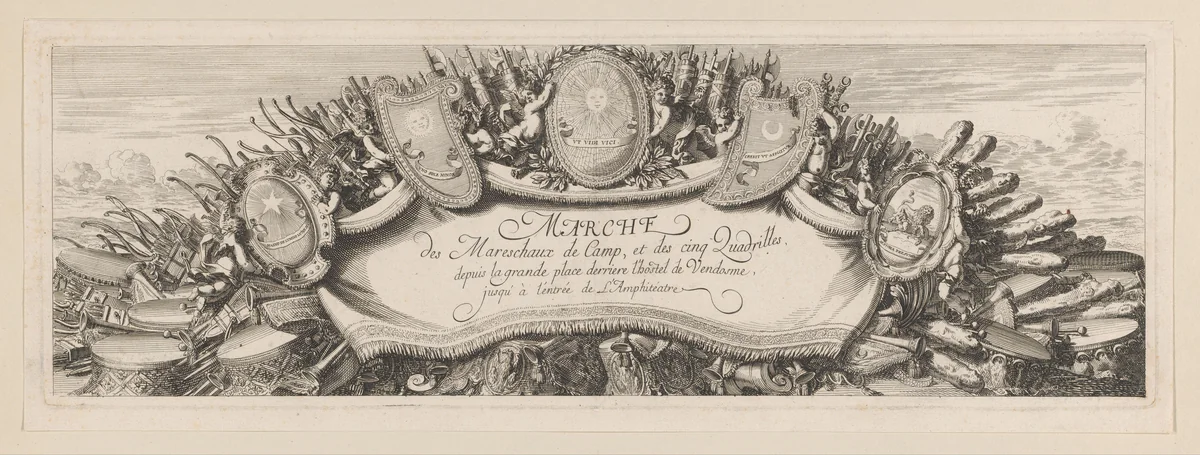 VT VIDI VICI
MARCHE
des Mareschaux de Camp, et des cinq Quadrilles,
depuis la grande place derriere l'hostel de Vendosme,
jusqu'à l'entrée de L'Amphiteatre